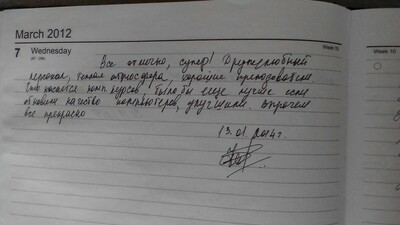 March 2012
7 Wednesday
Week 10
Week 10
Все отлично, супер! Дружелюбный
персонал, теплая атмосфера, хорошие преподаватели
Что касается комп. курсов, было бы еще лучше если
обновили качество компьютеров, улучшили, впрочем
все прекрасно
13.01.2014г.